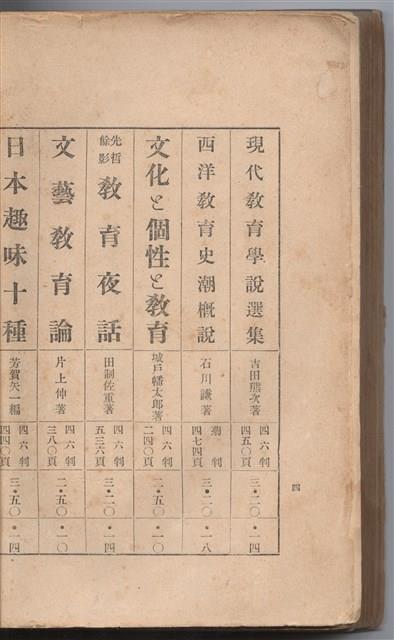 現代教育學說選集 吉田熊次著 四六判 四五〇頁 三・二〇・一四
西洋教育史潮概說 石川謙著 菊判 四七四頁 三・二〇・一八
文化と個性と教育 城戸幡太郎著 四六判 二四〇頁 二・五〇・一〇
先哲餘影 教育夜話 田制佐重著 四六判 五三六頁 三・二〇・一四
文藝教育論 片上伸著 四六判 三八〇頁 二・五〇・一〇
日本趣味十種 芳賀矢一編 四六判 四四〇頁 三・五〇・一四
四